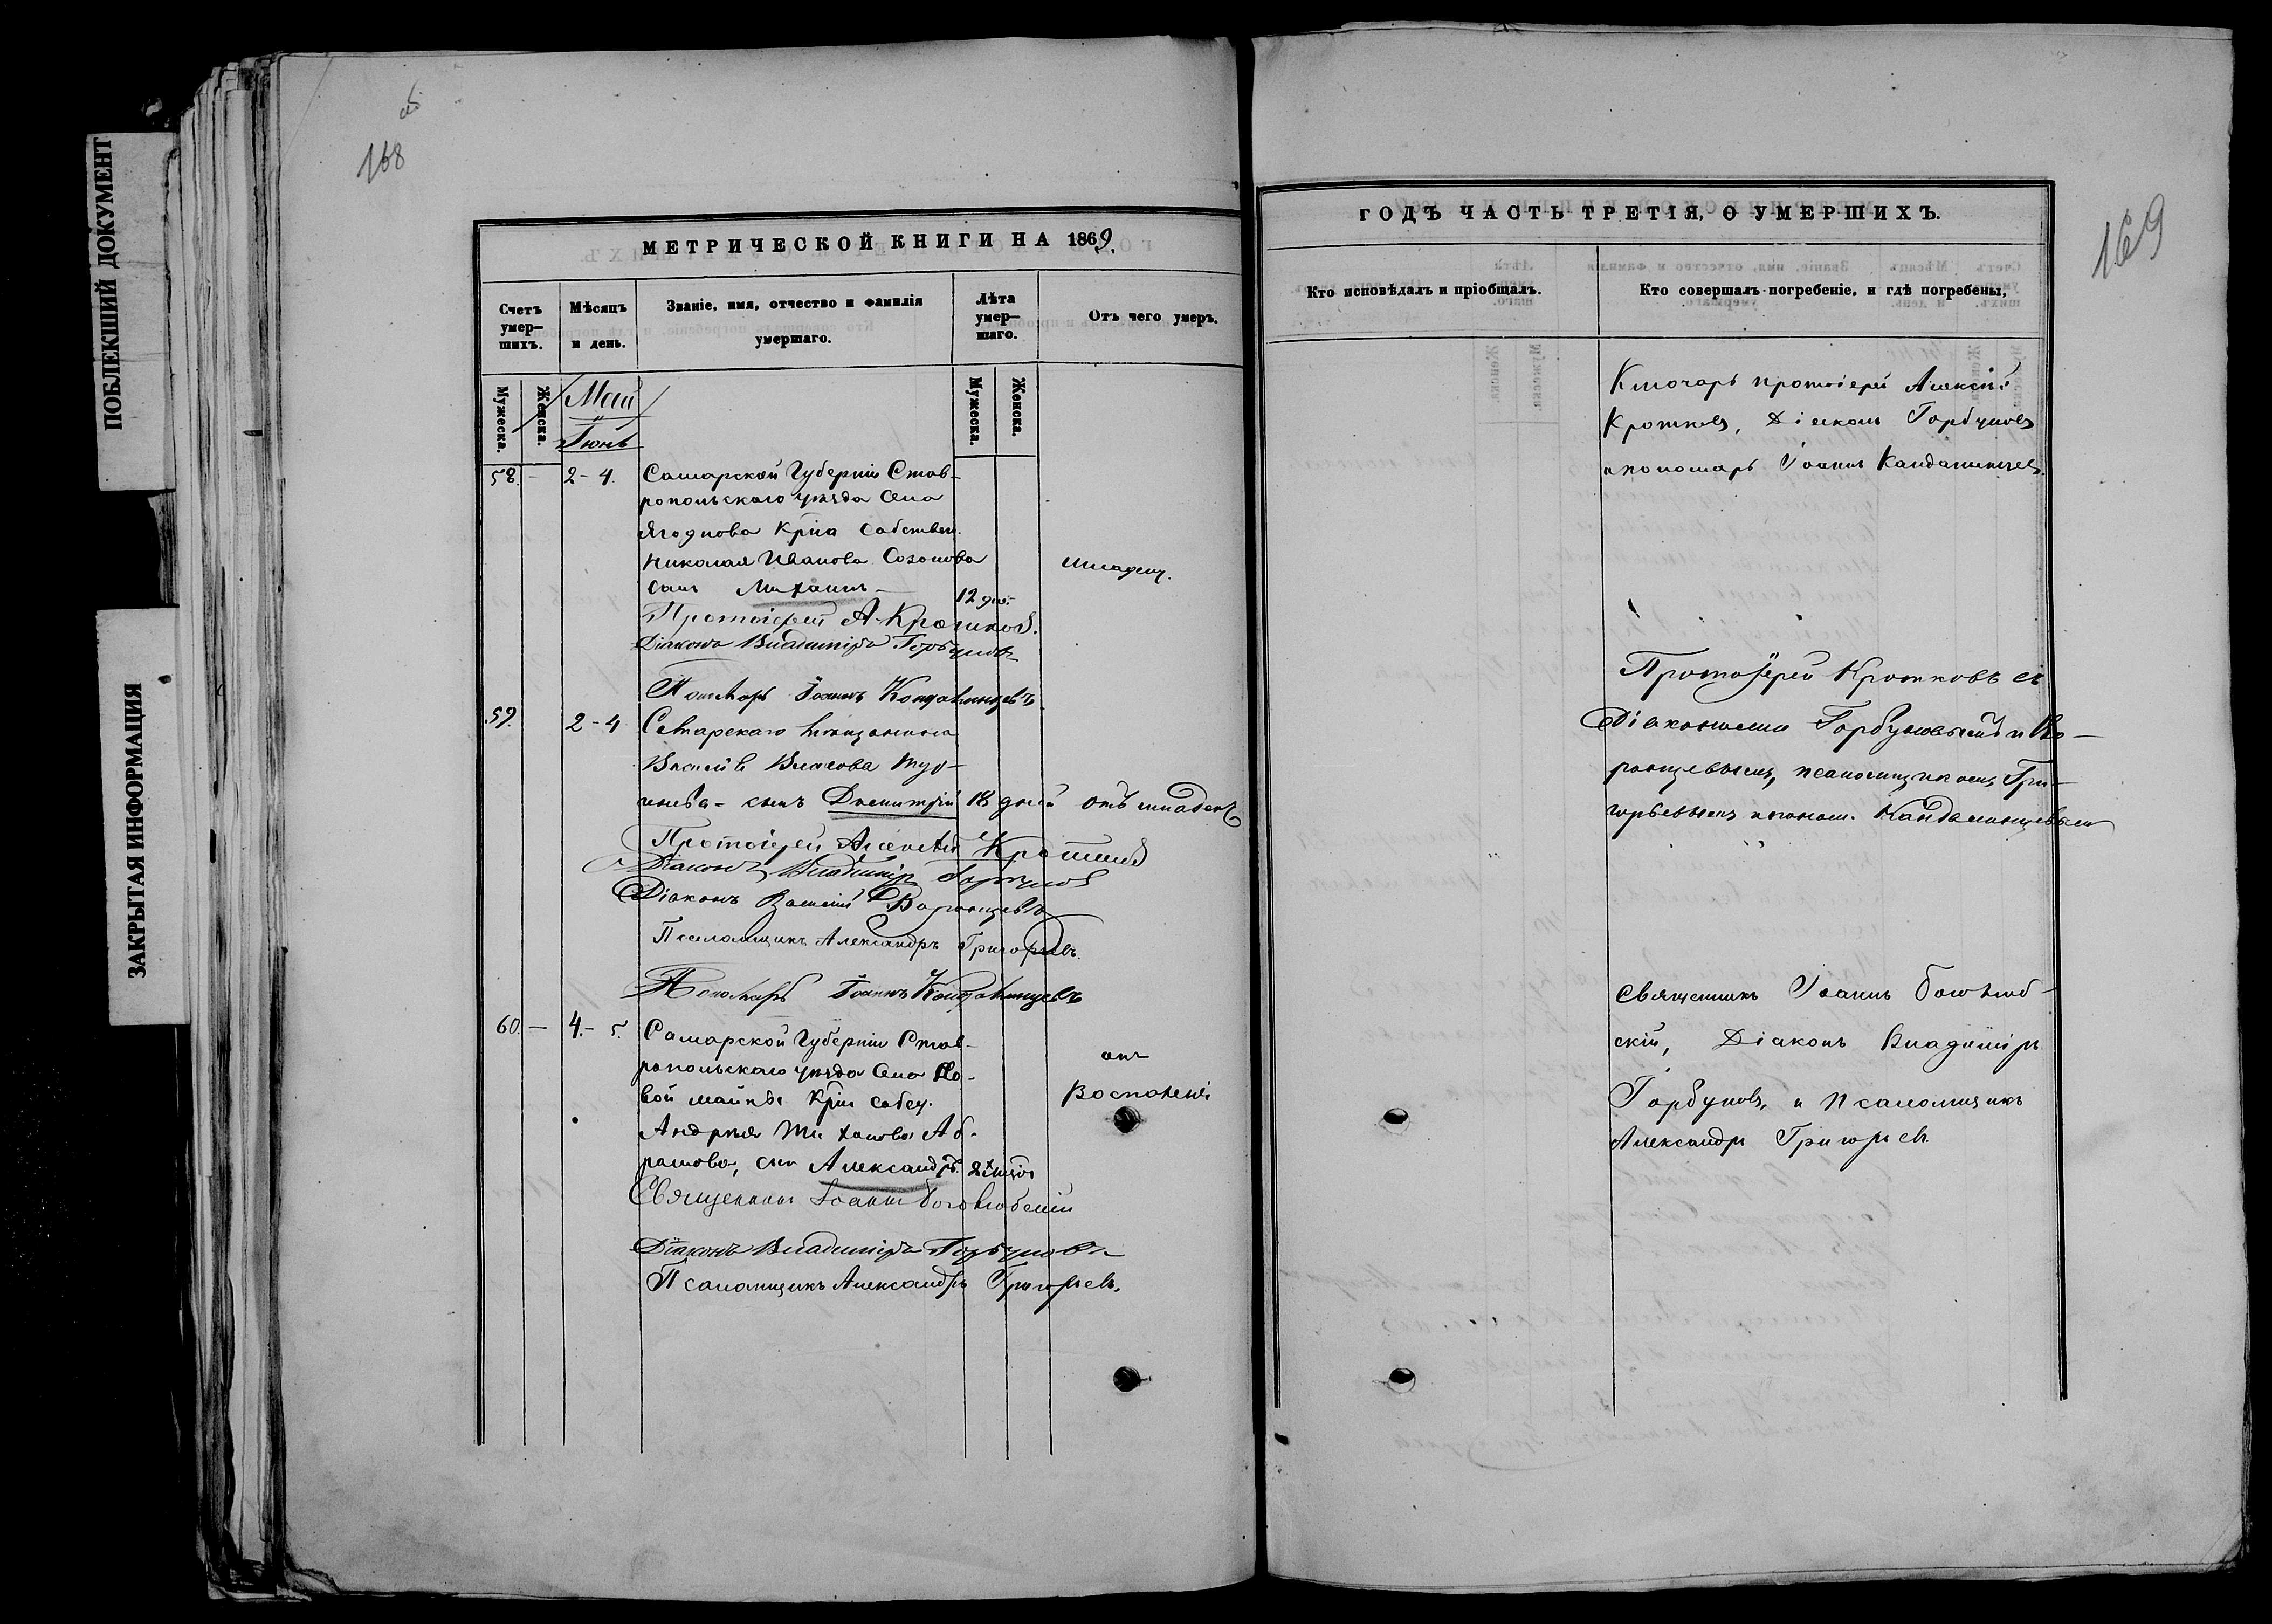 ПОБЛЕКШИЙ ДОКУМЕНТ
ЗАКРЫТАЯ ИНФОРМАЦИЯ
об
168
МЕТРИЧЕСКОЙ КНИГИ НА 1869.
Счетъ умер-шихъ.
Мѣсяцъ и день.
Званіе, имя, отчество и фамилія умершаго.
Лѣта умер-шаго.
Отъ чего умеръ.
Мужеска.
Женска.
Май
Іюнь
Мужеска.
Женска.
58. - 2-4. Самарской Губерніи Став-
ропольскаго уѣзда села
Ягоднова Крна Собствен.
Николая Иванова Созонова
сынъ Михаилъ - 12 дне. младенч.
Протоіерей А Кротковъ.
Діаконъ Владиміръ Горбуновъ
Пономарь Іоаннъ Кондаминцевъ
59. 2-4 Самарскаго мѣщанина
Василія Власова
сынъ Димитрій 18 дней отъ младенч
Протоіерей Алексѣй Кротковъ
Діаконъ Владиміръ Горбуновъ
Діаконъ Василій Воронцевъ
Псаломщикъ Александръ Григорьевъ.
Пономарь Іоаннъ Кондаминцевъ
60. - 4.- 5. Самарской Губерніи Став-
ропольскаго уѣзда села Но-
вой майны Крна собст.
Андрея Аб-
рамова, сынъ Александръ.
отъ
Воспаленія
Священникъ Іоаннъ Боголюбскій
Діаконъ Владиміръ Горбуновъ
Псаломщикъ Александръ Григорьевъ.
169
ГОДЪ ЧАСТЬ ТРЕТІЯ, О УМЕРШИХЪ.
Кто исповѣдалъ и пріобщалъ.
Кто совершалъ погребеніе, и гдѣ погребены,
Ключарь протоіерей Алексій
Кротковъ, Діаконъ Горбуновъ
и пономарь Іоаннъ Кандаминцевъ.
Протоіерей Кротковъ съ
Діаконами Горбуновымъ и Во-
ронцевымъ, псаломщикомъ Гри-
горьевымъ и поном. Кандаминцевымъ
Священникъ Іоаннъ Боголюб-
скій, Діаконъ Владиміръ
Горбуновъ, и Псаломщикъ
Александръ Григорьевъ.